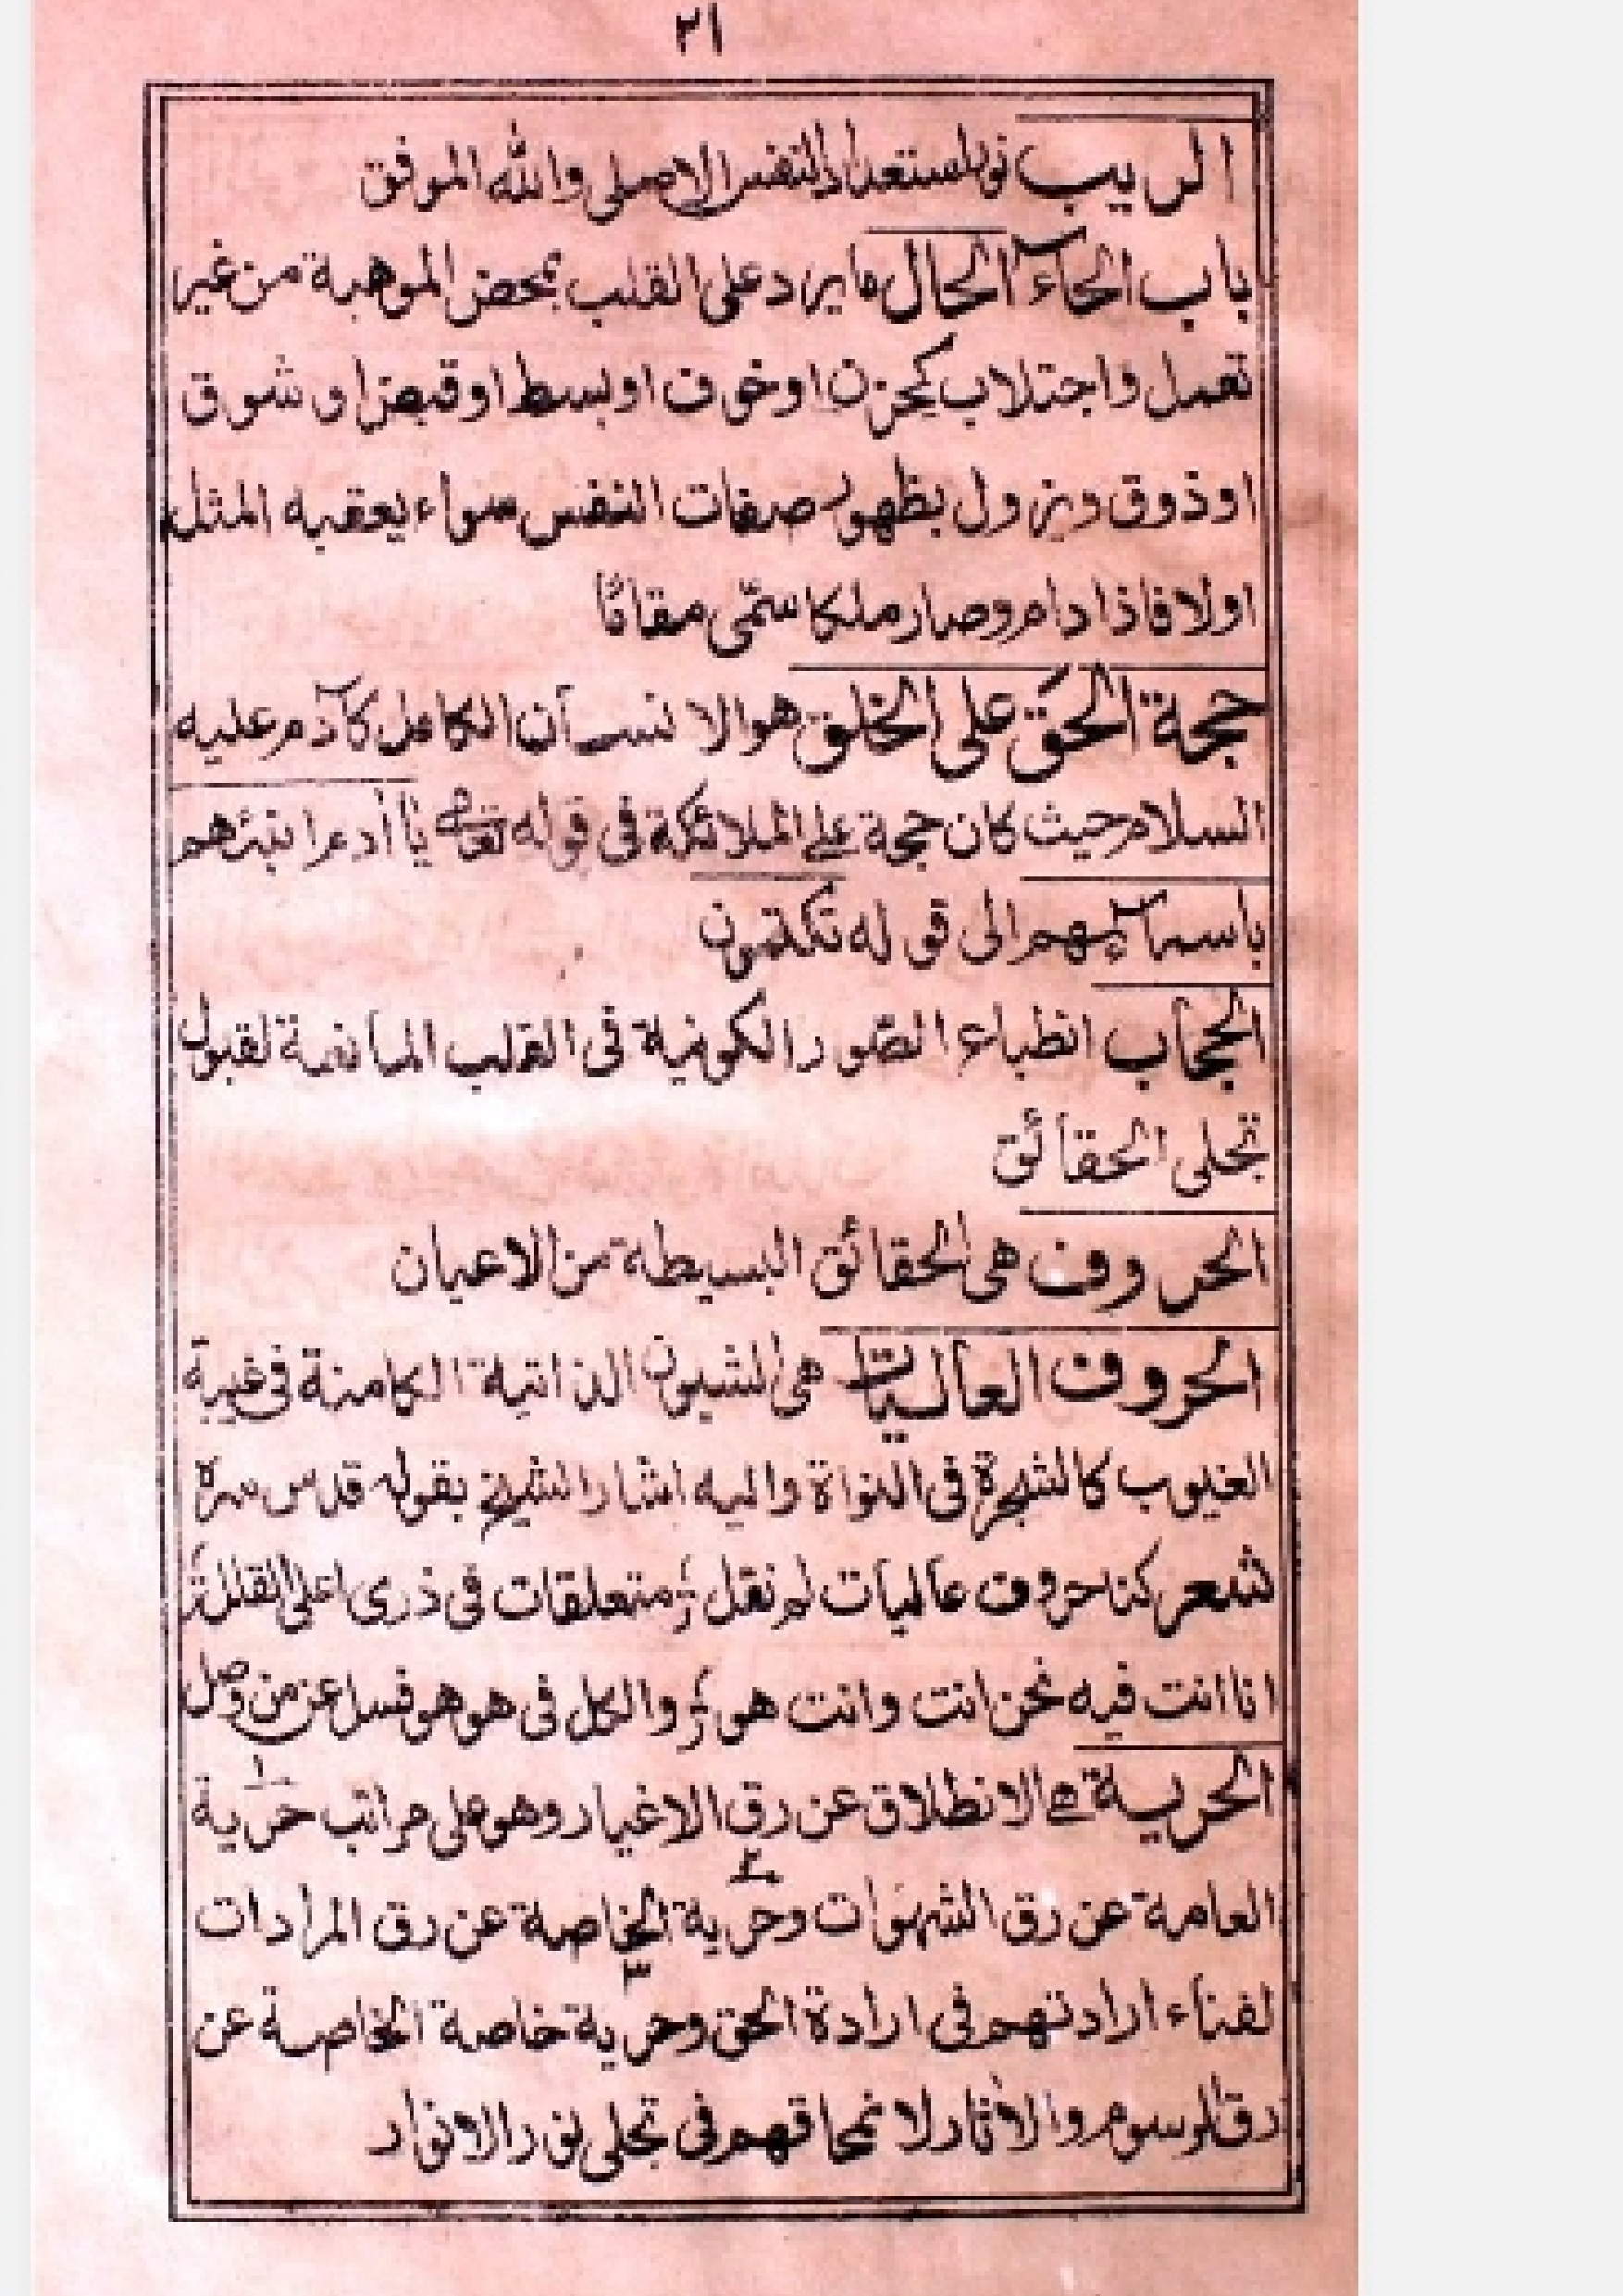 ٢١
الريب نور استعداد النفس الاصلى والله الموفق
باب الحآء الحال ما يرد على القلب بمحض الموهبة من غير
تعمل واجتلاب كحزن او خوف او بسط او قبض او شوق
او ذوق ويزول بظهور صفات النفس سواء يعقبه المثل
اولا فاذا دام وصار ملكا سمّى مقامًا
حجة الحق على الخلق هو الانسان الكامل كآدم عليه
السلام حيث كان حجة على الملائكة فى قوله تعالى يا أدم انبئهم
باسمآئهم الى قوله تكتمون
الحجاب انطباع الصّور الكونية فى القلب المانعة لقبول
تجلى الحقائق
الحروف هى الحقائق البسيطة من الاعيان
الحروف العاليات هى الشيون الذاتية الكامنة فى غيبة
الغيوب كالشجرة فى النواة واليه اشار الشيخ بقوله قدس سره
شعر كنا حروف عاليات لم نقل متعلقات فى ذرى اعلى القلل
انا انت فيه نحن انت وانت هو والكل فى هو هو فسل عن من وصل
الحرية هے الانطلاق عن رق الاغيار وهو على مراتب حرّية ١
العامة عن رق الشهوات وحرّية ٢ الخاصة عن رق المرادات
لفناء ارادتهم فى ارادة الحق وحرّية ٣ خاصة الخاصة عن
رق الرسوم والاثار لانمحاقهم فى تجلى نور الانوار